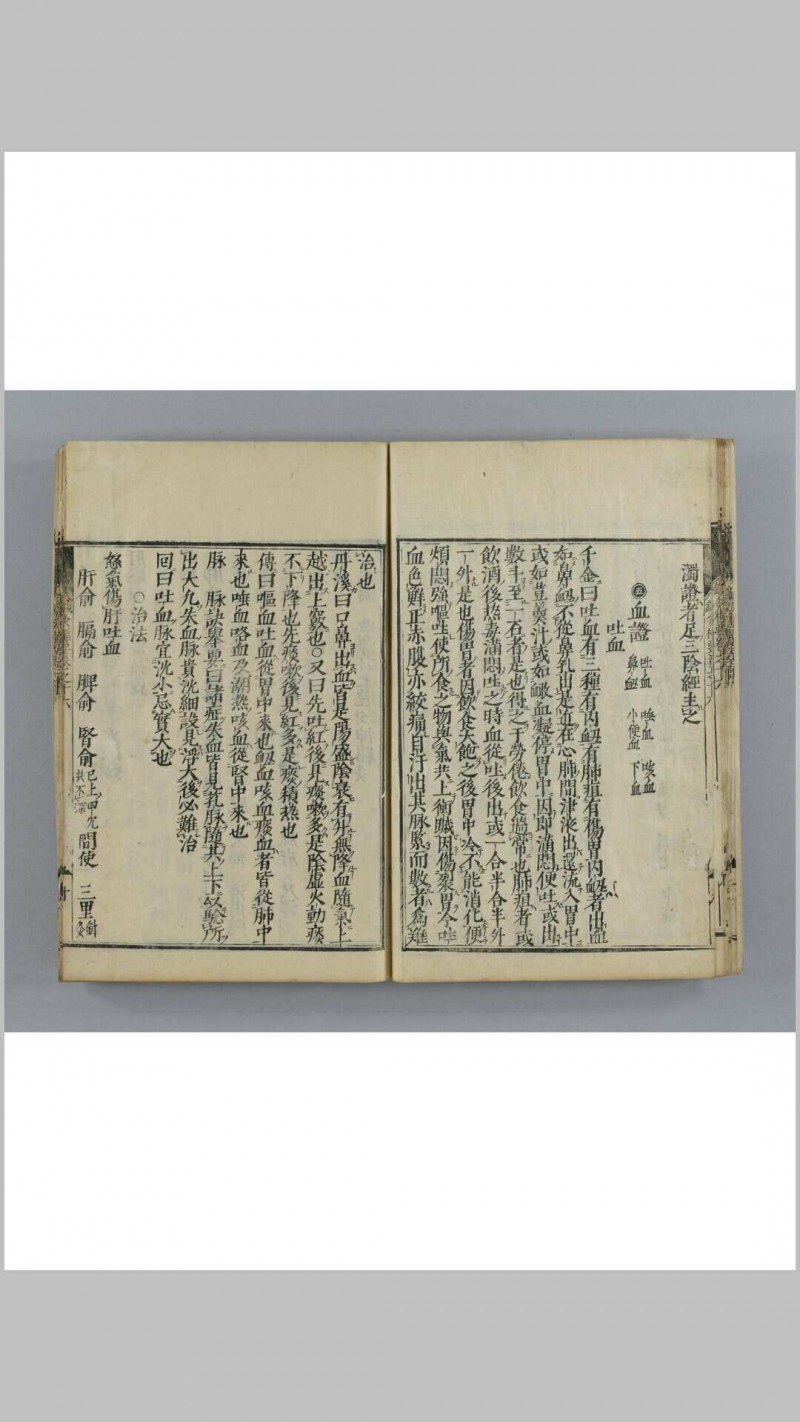 濁證者足三陰經主之
血證 吐血 唾血 咳血
鼻衂 小便血 下血
吐血
千金曰吐血有三種有内衂有肺疽有傷胃内衂者出血
如鼻衂不從鼻孔出是近在心肺間津液出還流入胃中
或如豆羹汁或如䘓血凝停胃中因即滿悶便吐或出
數斗至一石者是也得之于勞倦飲食過常也肺疽者或
飲酒後熱毒滿悶吐之時血從吐後出或一合半合半
一升是也傷胃者因飲食大飽之後胃中冷不能消化便
煩悶強嘔吐使所食之物與氣共上衝蹴因傷裂胃令吐
血色鮮正赤腹亦絞痛自汗出其脉緊而數者爲難
治也
丹溪曰口鼻出血皆是陽盛陰衰有升無降血隨氣上
越出上竅也○又曰先吐紅後見痰嗽多是陰虛火動痰
不下降也先痰嗽後見紅多是痰積熱也
傳曰嘔血吐血從胃中來也衂血咳血痰血者皆從肺中
來也唾血咯血及潮熱咳血從腎中來也
脉 脉訣舉要曰諸症失血皆見芤脉隨其上下以驗所
出大凡失血脉貴沈細設見浮大後必難治
回曰吐血脉宜沈小忌實大也
○治法
怒氣傷肝吐血
肝俞 膈俞 脾俞 腎俞 已上 間使 三里 針灸